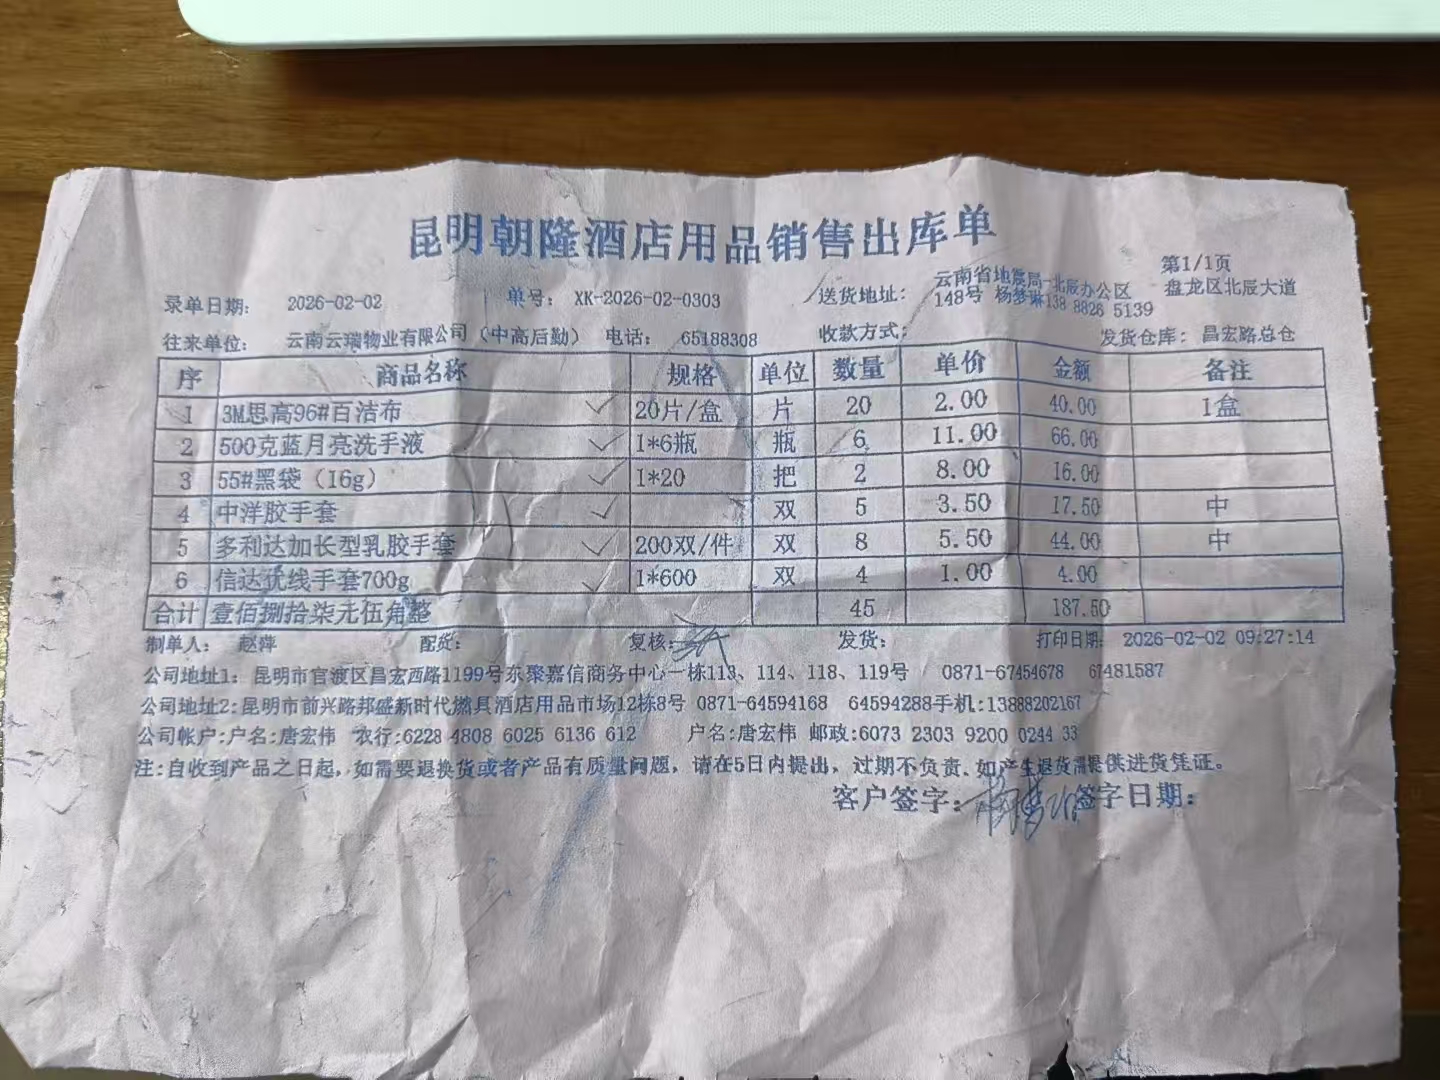 昆明朝隆酒店用品销售出库单
第1/1页
录单日期: 2026-02-02 单号: XK-2026-02-0303 送货地址: 云南省地震局-北辰办公区 盘龙区北辰大道
148号 杨梦琳138 8826 5139
往来单位: 云南云瑞物业有限公司（中高后勤） 电话: 65188308 收款方式: 发货仓库: 昌宏路总仓
序 商品名称 规格 单位 数量 单价 金额 备注
1 3M思高96#百洁布 20片/盒 片 20 2.00 40.00 1盒
2 500克蓝月亮洗手液 1*6瓶 瓶 6 11.00 66.00
3 55#黑袋（16g） 1*20 把 2 8.00 16.00
4 中洋胶手套 双 5 3.50 17.50 中
5 多利达加长型乳胶手套 200双/件 双 8 5.50 44.00 中
6 信达优线手套700g 1*600 双 4 1.00 4.00
合计 壹佰捌拾柒元伍角整 45 187.50
制单人: 赵萍 配货: 复核: 发货: 打印日期: 2026-02-02 09:27:14
公司地址1: 昆明市官渡区昌宏西路1199号东聚嘉信商务中心一栋113、114、118、119号 / 0871-67454678 67481587
公司地址2:昆明市前兴路邦盛新时代燃具酒店用品市场12栋8号 0871-64594168 64594288手机:13888202167
公司帐户:户名:唐宏伟 农行:6228 4808 6025 6136 612 户名:唐宏伟 邮政:6073 2303 9200 0244 33
注:自收到产品之日起,如需要退换货或者产品有质量问题, 请在5日内提出, 过期不负责.如产生退货需提供进货凭证。
客户签字: 签字日期: